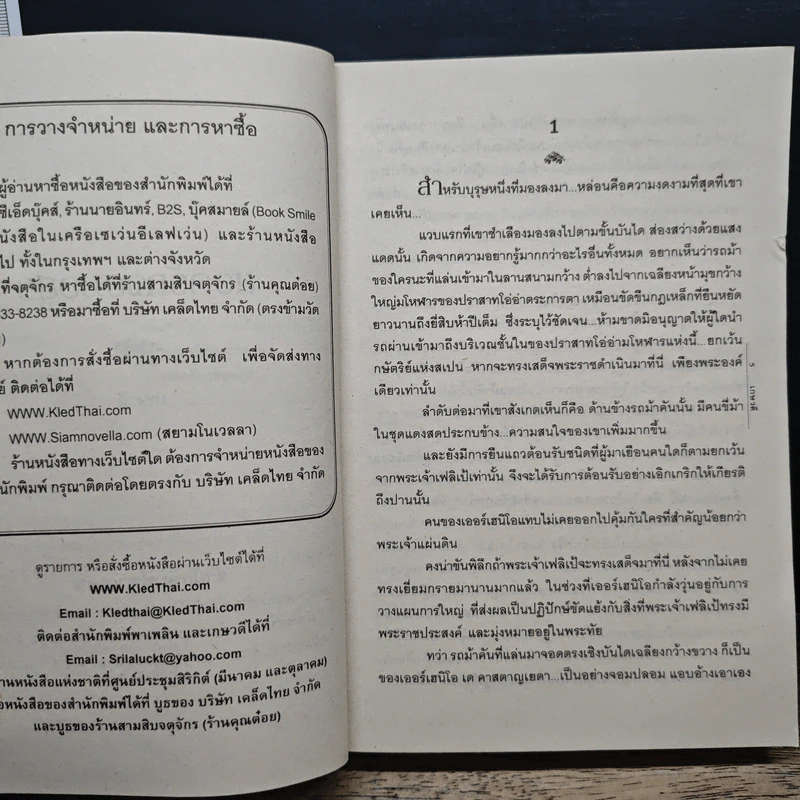 การวางจำหน่าย และการหาซื้อ
ผู้อ่านหาซื้อหนังสือของสำนักพิมพ์ได้ที่
ซีเอ็ดบุ๊คส์, ร้านนายอินทร์, B2S, บุ๊คสมายล์ (Book Smile
นังสือในเครือเซเว่นอีเลฟเว่น) และร้านหนังสือ
ไป ทั้งในกรุงเทพฯ และต่างจังหวัด
ที่จตุจักร หาซื้อได้ที่ร้านสามสิบจตุจักร (ร้านคุณต๋อย)
33-8238 หรือมาซื้อที่ บริษัท เคล็ดไทย จำกัด (ตรงข้ามวัด
)
หากต้องการสั่งซื้อผ่านทางเว็บไซต์ เพื่อจัดส่งทาง
ย์ ติดต่อได้ที่
WWW.KledThai.com
WWW.Siamnovella.com (สยามโนเวลลา)
ร้านหนังสือทางเว็บไซต์ใด ต้องการจำหน่ายหนังสือของ
นักพิมพ์ กรุณาติดต่อโดยตรงกับ บริษัท เคล็ดไทย จำกัด
ดูรายการ หรือสั่งซื้อหนังสือผ่านเว็บไซต์ได้ที่
WWW.KledThai.com
Email : Kledthai@KledThai.com
ติดต่อสำนักพิมพ์พาเพลิน และเกษวดีได้ที่
Email : Srilaluckt@yahoo.com
านหนังสือแห่งชาติที่ศูนย์ประชุมสิริกิต์ (มีนาคม และตุลาคม)
อหนังสือของสำนักพิมพ์ได้ที่ บูธของ บริษัท เคล็ดไทย จำกัด
และบูธของร้านสามสิบจตุจักร (ร้านคุณต๋อย)
1
สำหรับบุรุษหนึ่งที่มองลงมา...หล่อนคือความงดงามที่สุดที่เขา
เคยเห็น...
แวบแรกที่เขาชำเลืองมองลงไปตามชั้นบันได ส่องสว่างด้วยแสง
แดดนั้น เกิดจากความอยากรู้มากกว่าอะไรอื่นทั้งหมด อยากเห็นว่ารถม้า
ของใครนะที่แล่นเข้ามาในลานสนามกว้าง ต่ำลงไปจากเฉลียงหน้ามุขกว้าง
ใหญ่มโหฬารของปราสาทโอ่อ่าตระการตา เหมือนขัดขืนกฎเหล็กที่ยืนหยัด
ยาวนานถึงยี่สิบห้าปีเต็ม ซึ่งระบุไว้ชัดเจน...ห้ามขาดมิอนุญาตให้ผู้ใดนำ
รถผ่านเข้ามาถึงบริเวณชั้นในของปราสาทโอ่อ่ามโหฬารแห่งนี้...ยกเว้น
กษัตริย์แห่งสเปน หากจะทรงเสด็จพระราชดำเนินมาที่นี่ เพียงพระองค์
เดียวเท่านั้น
ลำดับต่อมาที่เขาสังเกตเห็นก็คือ ด้านข้างรถม้าคันนั้น มีคนขี่ม้า
ในชุดแดงสดประกบข้าง...ความสนใจของเขาเพิ่มมากขึ้น
และยังมีการยืนแถวต้อนรับชนิดที่ผู้มาเยือนคนใดก็ตามยกเว้น
จากพระเจ้าเฟลิเป้เท่านั้น จึงจะได้รับการต้อนรับอย่างเอิกเกริกให้เกียรติ
ถึงปานนั้น
คนของเออร์เฮนิโอแทบไม่เคยออกไปคุ้มกันใครที่สำคัญน้อยกว่า
พระเจ้าแผ่นดิน
คงน่าขันพิลึกถ้าพระเจ้าเฟลิเป้จะทรงเสด็จมาที่นี่ หลังจากไม่เคย
ทรงเยี่ยมกรายมานานมากแล้ว ในช่วงที่เออร์เฮนิโอกำลังวุ่นอยู่กับการ
วางแผนการใหญ่ ที่ส่งผลเป็นปฏิปักษ์ขัดแย้งกับสิ่งที่พระเจ้าเฟลิเป้ทรงมี
พระราชประสงค์ และมุ่งหมายอยู่ในพระทัย
ทว่า รถม้าคันที่แล่นมาจอดตรงเชิงบันไดเฉลียงกว้างขวาง ก็เป็น
ของเออร์เฮนิโอ เด คาสตาญเยดา...เป็นอย่างจอมปลอม แอบอ้างเอาเอง
5
เกษวดี